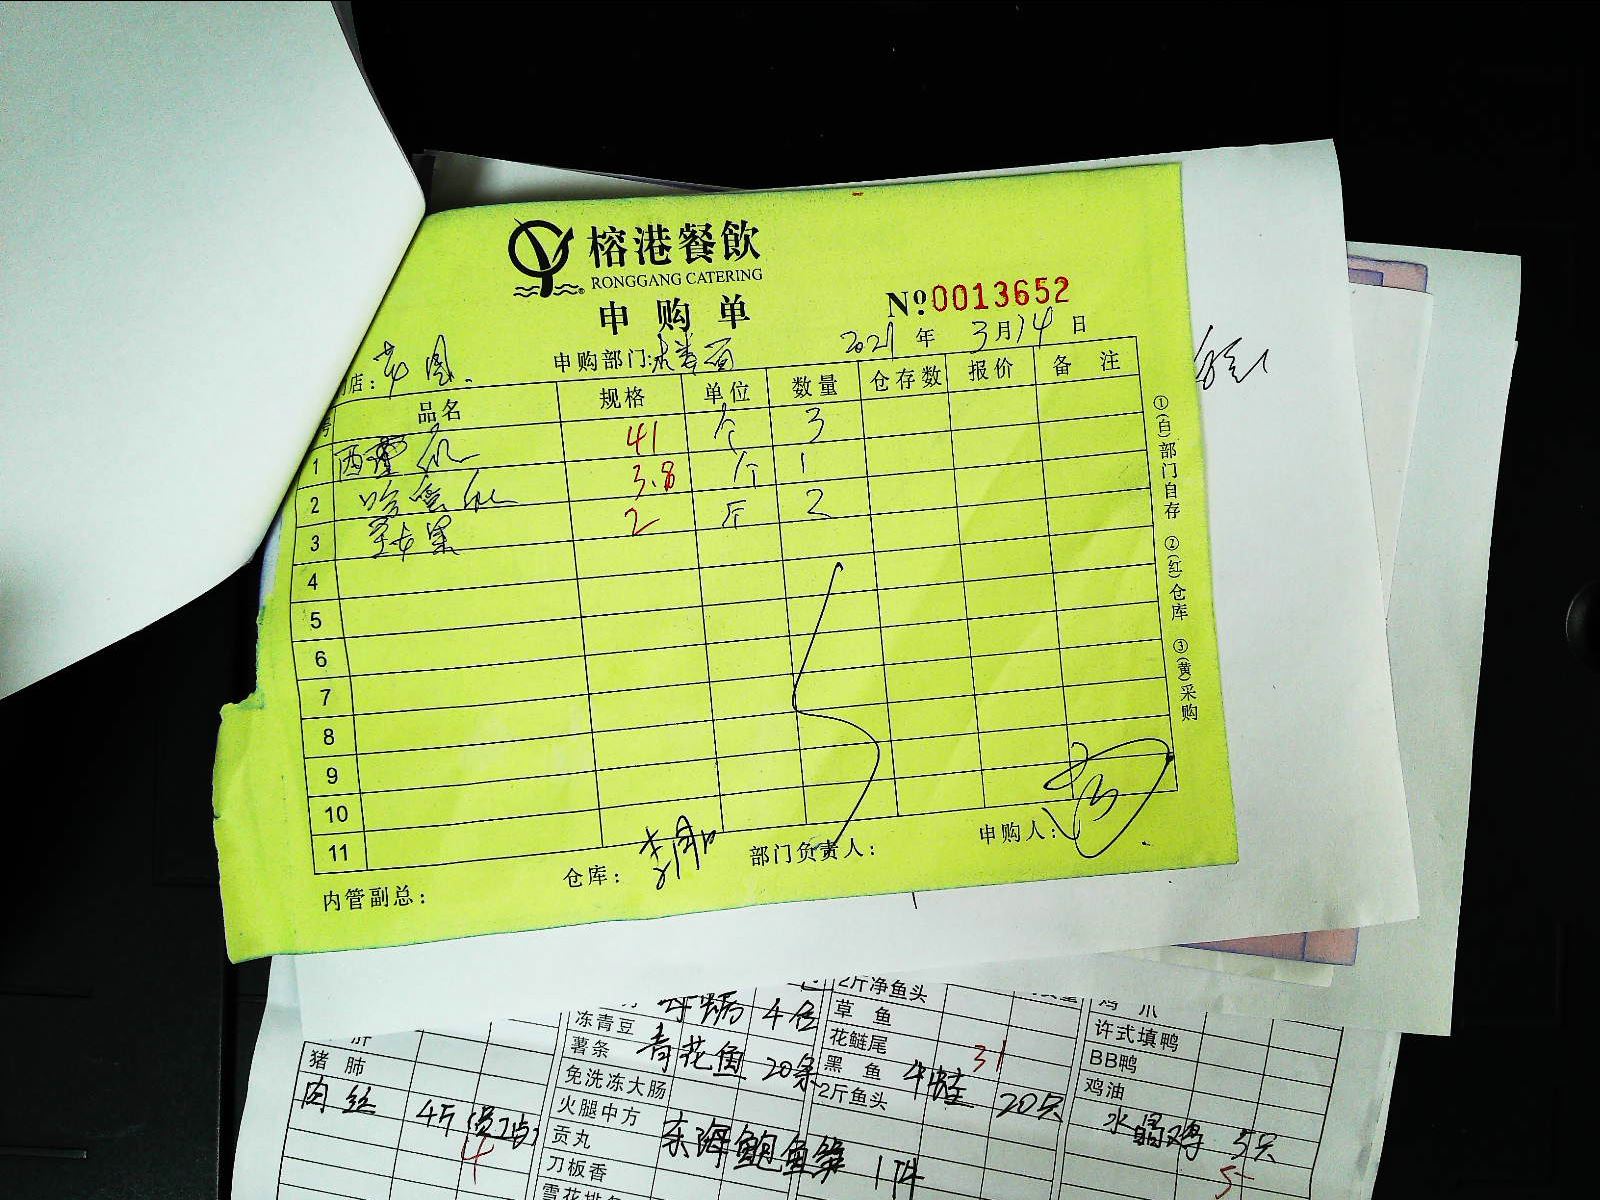 榕港餐飲
RONGGANG CATERING
申购单
№0013652
店：
申购部门：水果房 2021年3月14日
号 品名 规格 单位 数量 仓存数 报价 备注
1 西瓜 41 个 3
2 哈密瓜 3.8 个 1
3 圣女果 2 斤 2
4
5
6
7
8
9
10
11
内管副总： 仓库： 部门负责人： 申购人：
①(白)部门自存 ②(红)仓库 ③(黄)采购
猪肺
肉丝 4斤
4
4包
冻青豆
薯条 青花鱼 20条
免洗冻大肠
火腿中方
贡丸
刀板香
东海鲍鱼 1件
2斤净鱼头
草鱼
花鲢尾
黑鱼 牛蛙 20只
31
2斤鱼头
鸡爪
许式填鸭
BB鸭
鸡油
水晶鸡 5只
5